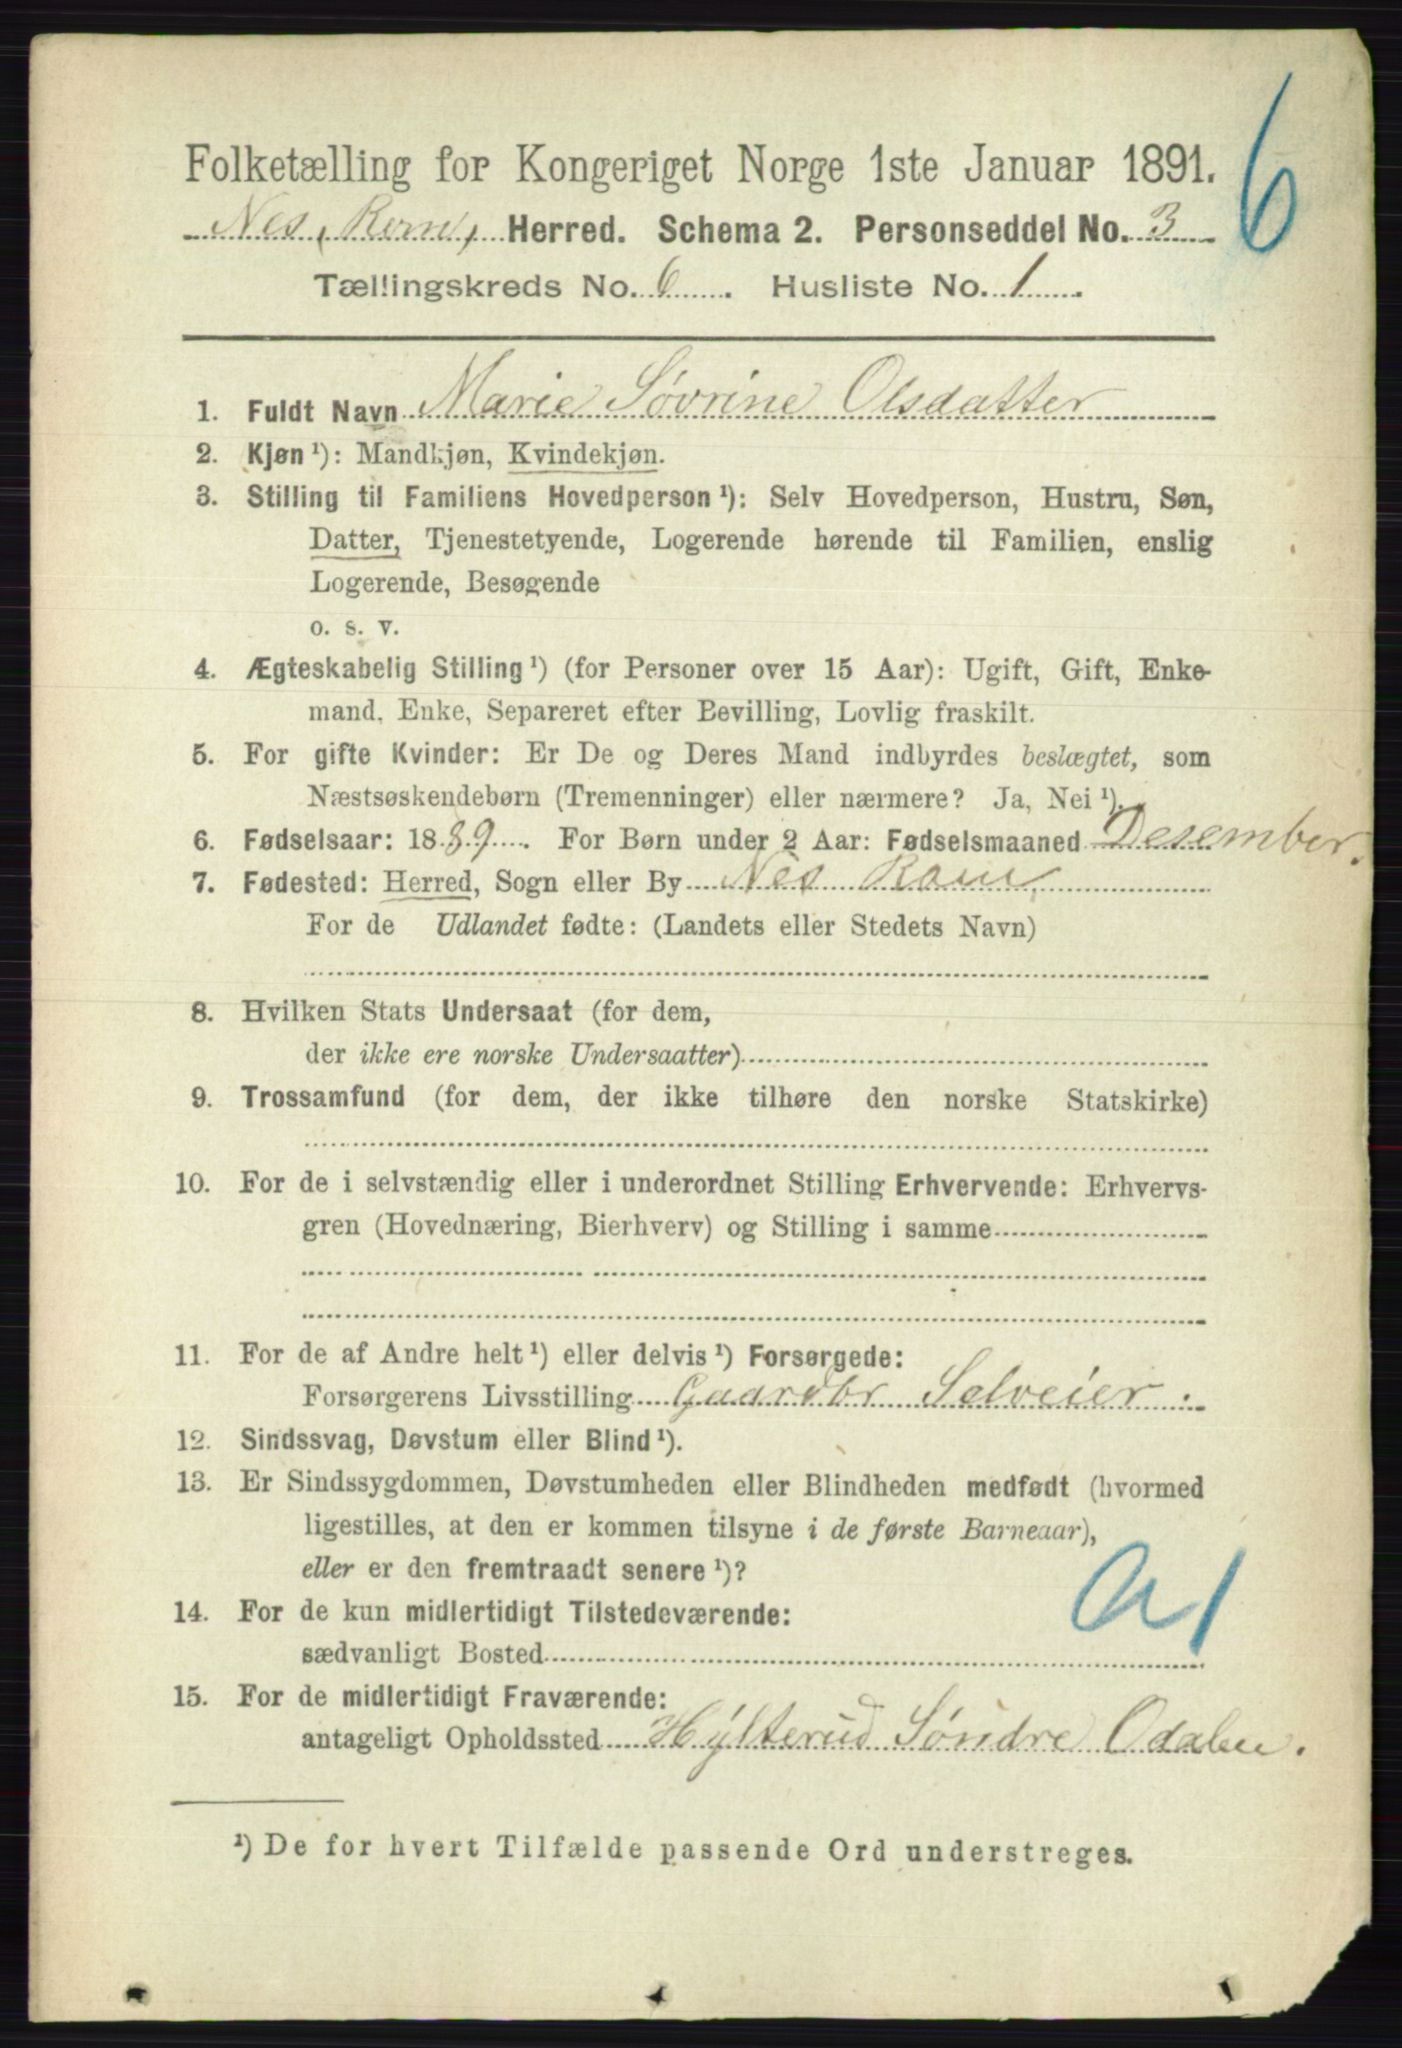 Folketælling for Kongeriget Norge 1ste Januar 1891.
6
Nes, Rom, Herred. Schema 2. Personseddel No. 3
Tællingskreds No. 6. Husliste No. 1.
1. Fuldt Navn Marie Søvrine Olsdatter
2. Kjøn ¹): Mandkjøn, Kvindekjøn.
3. Stilling til Familiens Hovedperson ¹): Selv Hovedperson, Hustru, Søn,
Datter, Tjenestetyende, Logerende hørende til Familien, enslig
Logerende, Besøgende
o. s. v.
4. Ægteskabelig Stilling ¹) (for Personer over 15 Aar): Ugift, Gift, Enke-
mand, Enke, Separeret efter Bevilling, Lovlig fraskilt.
5. For gifte Kvinder: Er De og Deres Mand indbyrdes beslægtet, som
Næstsøskendebørn (Tremenninger) eller nærmere? Ja, Nei ¹).
6. Fødselsaar: 1889. For Børn under 2 Aar: Fødselsmaaned Desember.
7. Fødested: Herred, Sogn eller By Nes Rom
For de Udlandet fødte: (Landets eller Stedets Navn)
8. Hvilken Stats Undersaat (for dem,
der ikke ere norske Undersaatter)
9. Trossamfund (for dem, der ikke tilhøre den norske Statskirke)
10. For de i selvstændig eller i underordnet Stilling Erhvervende: Erhvervs-
gren (Hovednæring, Bierhverv) og Stilling i samme
11. For de af Andre helt ¹) eller delvis ¹) Forsørgede:
Forsørgerens Livsstilling Gaardbr Selveier.
12. Sindssvag, Døvstum eller Blind ¹).
13. Er Sindssygdommen, Døvstumheden eller Blindheden medfødt (hvormed
ligestilles, at den er kommen tilsyne i de første Barneaar),
eller er den fremtraadt senere ¹)?
a1
14. For de kun midlertidigt Tilstedeværende:
sædvanligt Bosted
15. For de midlertidigt Fraværende:
antageligt Opholdssted Hylterud Søndre Odalen.
¹) De for hvert Tilfælde passende Ord understreges.